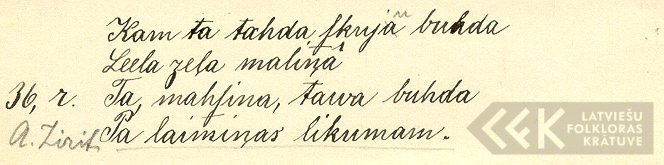 Kam ta tahda skuja buhda
Leela zeļa maliņâ
36, r. Ta, mahsina, tawa buhda
A. Zirit Pa laimiņas likumam.
LATVIEŠU
FOLKLORAS
KRĀTUVE